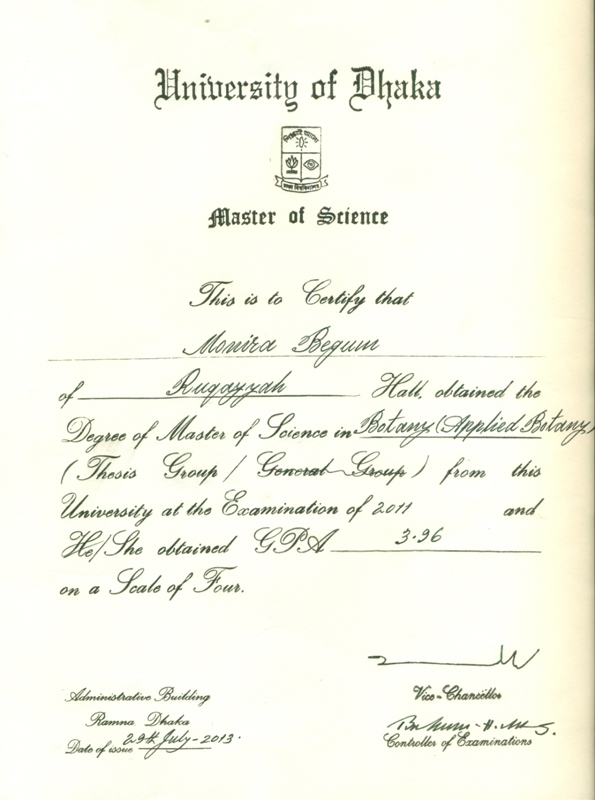 University of Dhaka
শিক্ষাই আলো
ঢাকা বিশ্ববিদ্যালয়
Master of Science
This is to Certify that
Monira Begum
of Ruqayyah Hall, obtained the
Degree of Master of Science in Botany (Applied Botany)
(Thesis Group / General Group) from this
University at the Examination of 2011 and
He/She obtained GPA 3.96
on a Scale of Four.
Administrative Building
Ramna Dhaka
Date of issue 29th July-2013.
Vice-Chancellor
Controller of Examinations